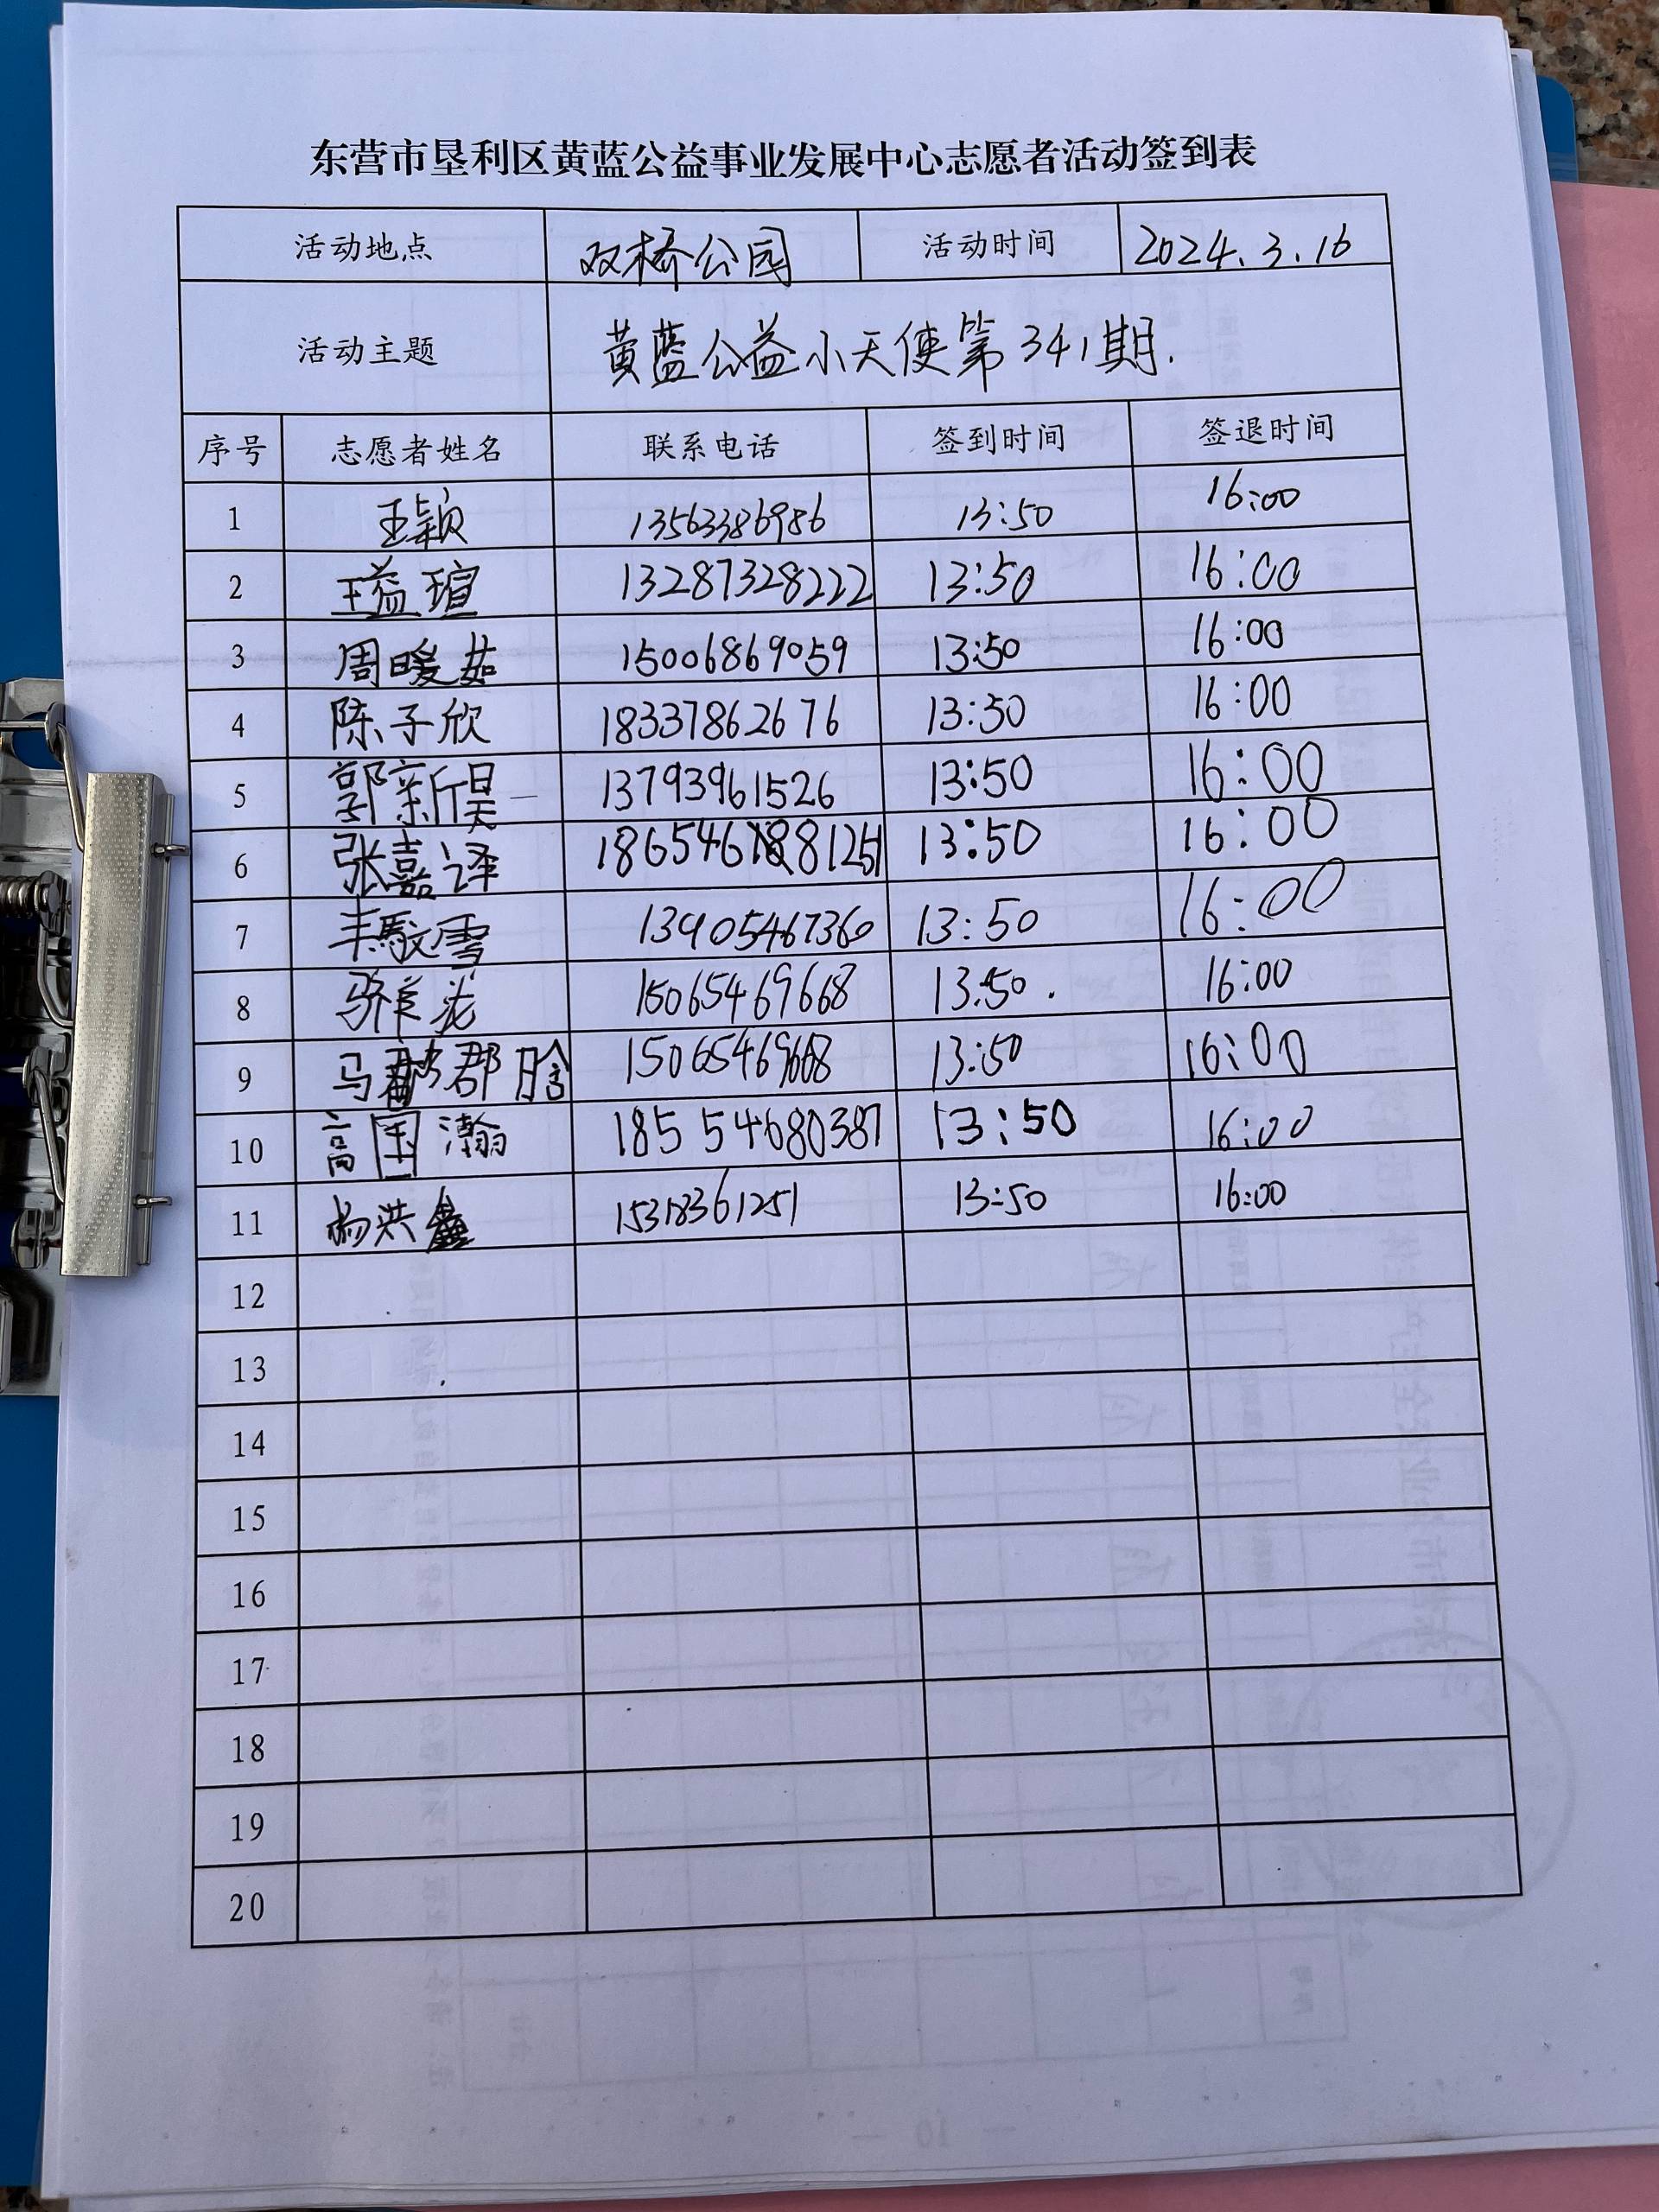 东营市垦利区黄蓝公益事业发展中心志愿者活动签到表
活动地点 双桥公园 活动时间 2024.3.16
活动主题 黄蓝公益小天使第341期.
序号 志愿者姓名 联系电话 签到时间 签退时间
1 王颖 13563386986 13:50 16:00
2 王益瑄 13287328222 13:50 16:00
3 周暖茹 15006869059 13:50 16:00
4 陈子欣 18337862676 13:50 16:00
5 郭新昊 13793961526 13:50 16:00
6 张嘉译 13:50 16:00
7 雪 13905467360 13:50 16:00
8 15065469668 13:50. 16:00
9 马 郡晗 15065469668 13:50 16:00
10 高国瀚 18554680387 13:50 16:00
11 杨洪鑫 15318361251 13:50 16:00
12
13
14
15
16
17
18
19
20